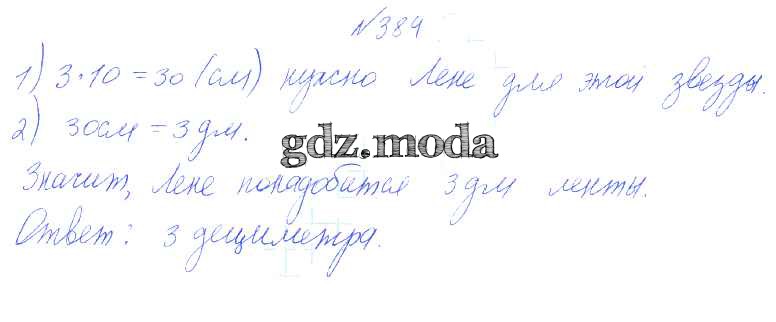 №384
1) 3·10=30 (см) нужно Лене для этой звезды.
2) 30см=3дм.
gdz.moda
Значит, Лене понадобится 3дм ленты.
Ответ: 3 дециметра.